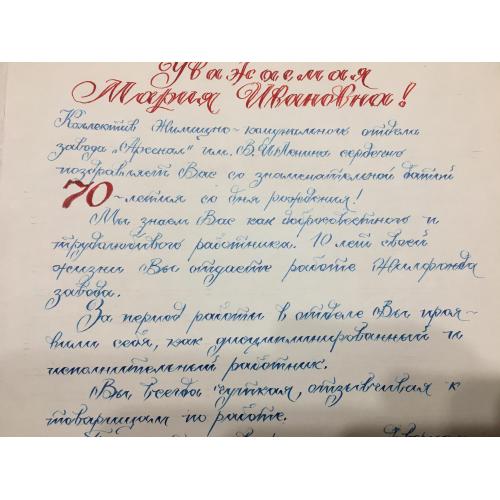 Уважаемая
Мария Ивановна!
Коллектив Жилищно-коммунального отдела
завода "Арсенал" им. В.И.Ленина сердечно
поздравляет Вас со знаменательной датой
70-летия со дня рождения!
Мы знаем Вас как добросовестного и
трудолюбивого работника. 10 лет своей
жизни Вы отдаете работе Жилфонда
завода.
За период работы в отделе Вы проя-
вили себя, как дисциплинированный и
исполнительный работник.
Вы всегда чуткая, отзывчивая к
товарищам по работе.